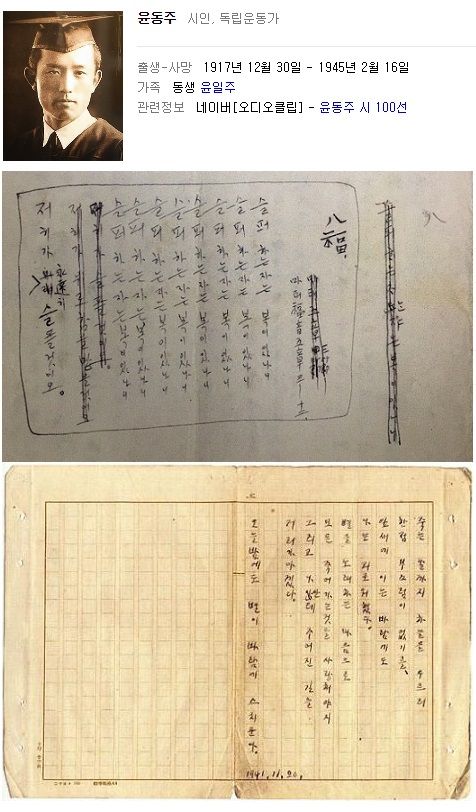 윤동주 시인, 독립운동가
출생-사망 1917년 12월 30일 - 1945년 2월 16일
가족 동생 윤일주
관련정보 네이버[오디오클립] - 윤동주 시 100선
八
八福
마태福音五章三 - 十二
슬퍼 하는자는 복이있나니
슬퍼 하는자는 복이있나니
슬퍼 하는자는 복이있나니
슬퍼 하는자는 복이있나니
슬퍼 하는자는 복이있나니
슬퍼 하는자는 복이있나니
슬퍼 하는자는 복이있나니
슬퍼 하는자는 복이있나니
저히가 永遠히 슬플것이오。
죽는 날까지 하늘을 우르러
한점 부끄럼이 없기를,
잎새에 이는 바람에도
나는 괴로워했다.
별을 노래하는 마음으로
모든 죽어가는것을 사랑해야지
그리고 나안테 주어진 길을
거러가야겠다.
오늘밤에도 별이 바람에 스치운다.
1941.11.20.